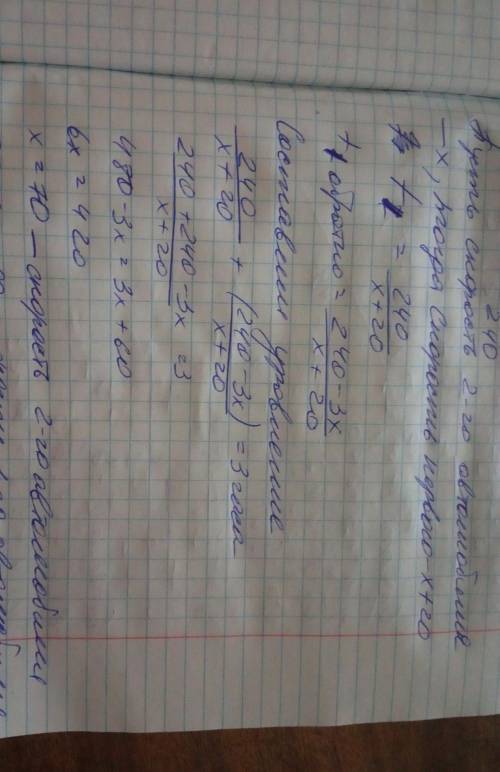 240
Пусть скорость 2-го автомобиля
— x, тогда скорость первого - x+20
t₁ = 240/(x+20)
t₁ обратно = (240-3x)/(x+20)
Составим уравнение
240/(x+20) + ((240-3x)/(x+20)) = 3 часа
(240+240-3x)/(x+20) = 3
480-3x = 3x+60
6x = 420
x = 70 - скорость 2-го автомобиля